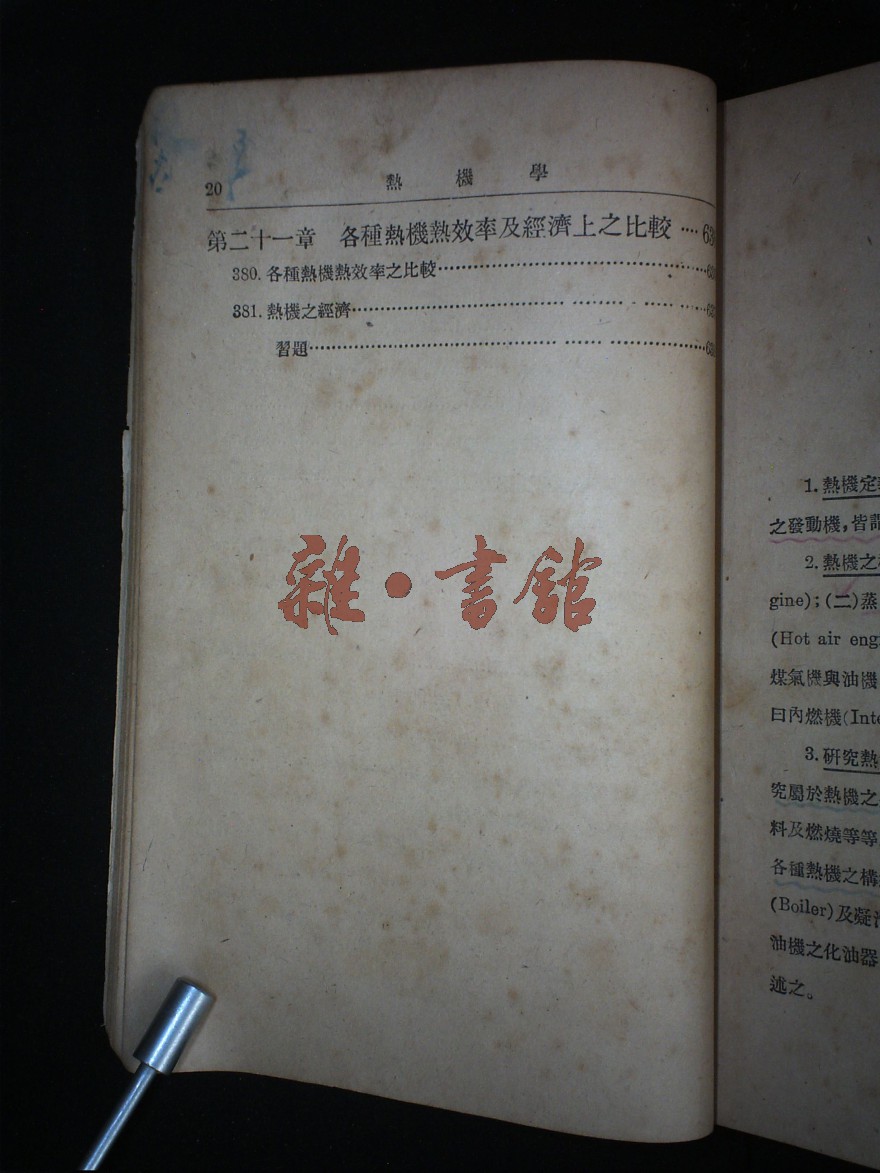 20
熱機學
第二十一章 各種熱機熱效率及經濟上之比較
380. 各種熱機熱效率之比較
381. 熱機之經濟
習題
雜·書館
1. 熱機定
之發動機，皆謂
2. 熱機之
gine); (二)蒸
(Hot air eng
煤氣機與油機
曰內燃機(Inte
3. 研究熱
究屬於熱機之
料及燃燒等等
各種熱機之構
(Boiler)及凝
油機之化油器
述之。